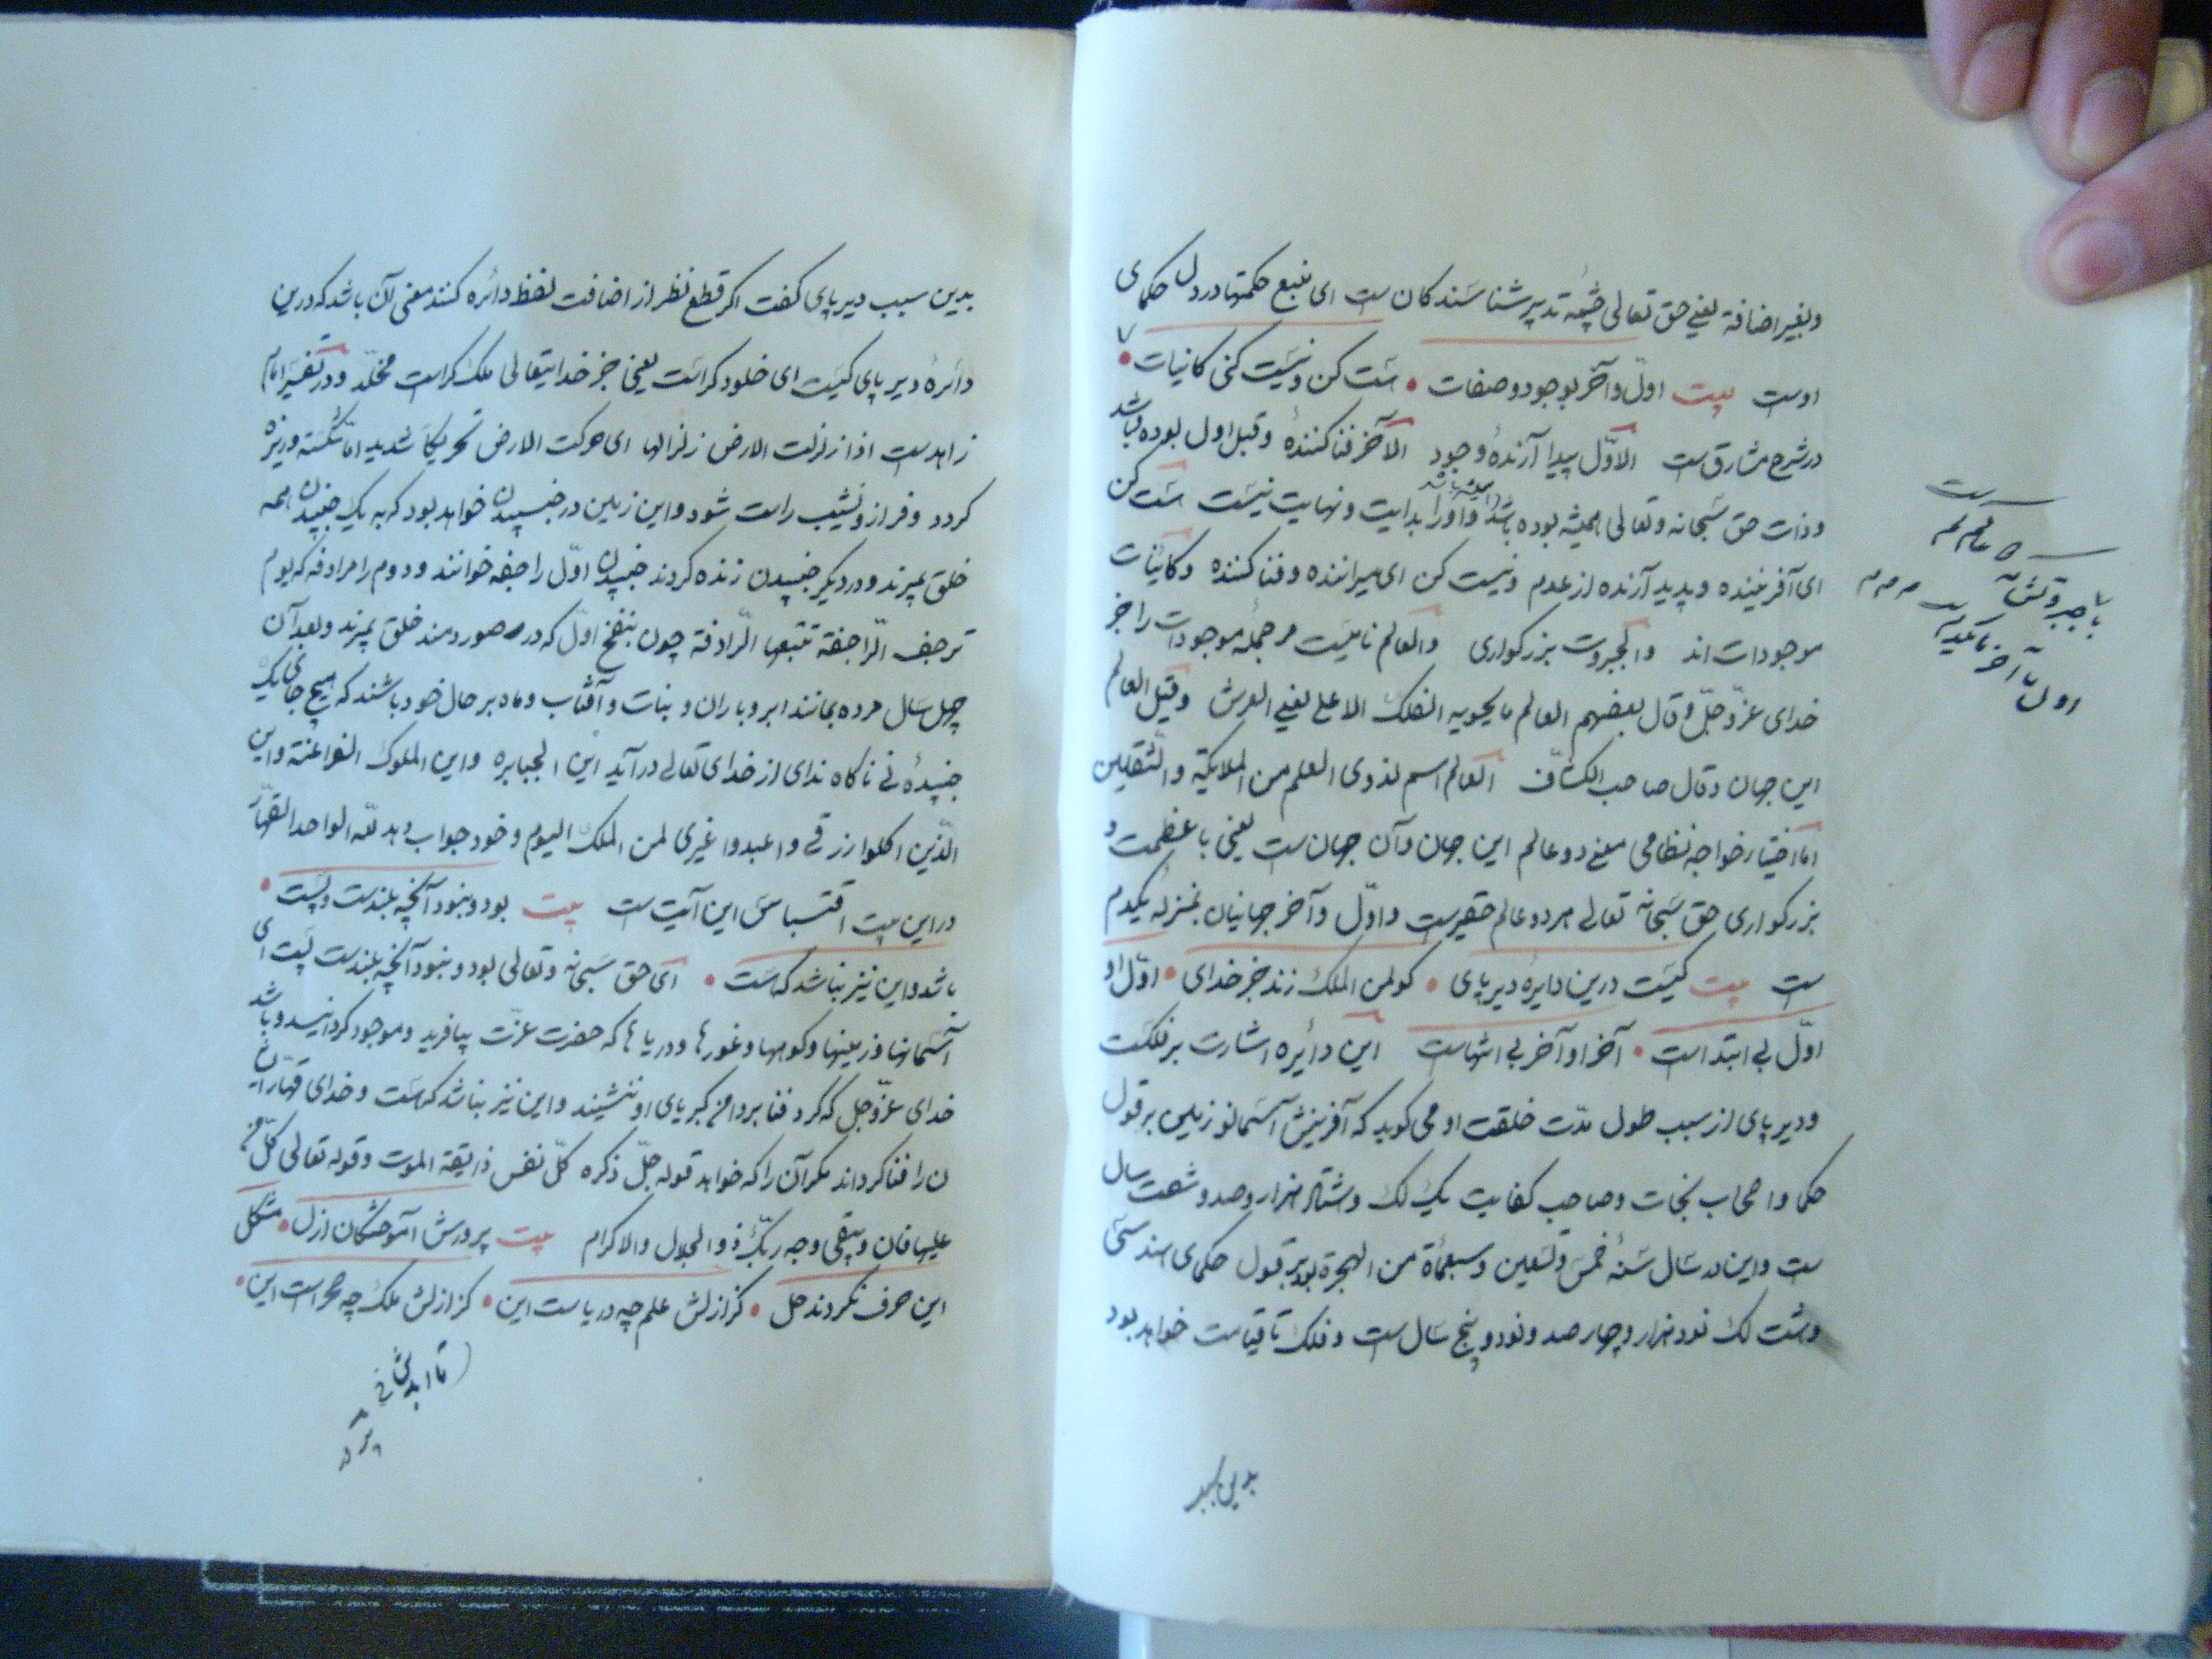 وبغیر اضافة یعنی حق تعالی چشمه تدبیر شناسندکان ست ای منبع حکمتها در دل حکمای
اوست بیت اوّل و آخر بوجود و صفات • هست کن و نیست کن کاینات •
در شرح مشارق ست الاوّل پیدا آرندهٔ وجود الآخر فنا کنندهٔ وقبل اول بوده باشد
و ذات حق سبحانه و تعالی همیشه بوده باشد و او را بدایت و نهایت نیست هست کن
ای آفریننده و پدید آرنده از عدم و نیست کن ای میراننده و فنا کننده و کائنات
موجودات اند والجبروت بزرکواری والعالم نامیست مر جملهٔ موجودات را جز
خدای عزّ و جلّ و قال بعضهم العالم ما یحویه الفلک الاعلی یعنی العرش وقیل العالم
این جهان و قال صاحب الکشّاف العالم اسم لذوی العلم من الملایکة والثّقلین
اما اختیار خواجه نظامی معنی دو عالم این جهان و آن جهان ست یعنی با عظمت و
بزرکواری حق سبحانه تعالی هر دو عالم حقیرست و اوّل و آخر جهانیان بمنزلهٔ یکدم
ست بیت کیست درین دایرهٔ دیرپای • کو لمن الملک زند جز خدای • اوّل او
اوّل بی ابتداست • آخر او آخر بی انتهاست این دائره اشارت بر فلکست
و دیرپای از سبب طول مدّت خلقت او می کوید که آفرینش آسمان و زمین بر قول
حکما و اصحاب نجات و صاحب کفایت یک لک و هشتاد هزار و صد و شصت سال
ست و این در سال سنهٔ خمس و تسعین و سبعمأة من الهجرة بود بر قول حکمای هند سی
وهشت لک نود هزار و چهار صد و نود و پنج سال ست و فلک تا قیامت خواهد بود
بدین سبب
با جبروتش
اول آخر
بدین سبب دیرپای کفت اکر قطع نظر از اضافت لفظ دائره کنند معنی آن باشد که درین
دائرهٔ دیرپای کیست ای خلود کراست یعنی جز خدایتعالی ملک کراست مخلّد و در تفسیر امام
زاهدست اذا زلزلت الارض زلزالها ای حرکت الارض تحریکا شدیدا تا شکسته و ریزه
کردد و فراز و نشیب راست شود و این زمین در جنبیدن خواهد بود که به یک جنبیدن همه
خلق بمیرند و در دیکر جنبیدن زنده کردند جنبیدن اوّل را جفه خوانند و دوم را مرادفه که یوم
ترجف الرّاجفة تتبعها الرّادفة چون بنفخ اوّل که در صور دمند خلق بمیرند و بعد آن
چهل سال مرده بمانند ابر و باران و نبات و آفتاب و ماه بر حال خود باشند که هیچ جای یک
جنبیدهٔ نی ناکاه ندای از خدای تعالی درآید این الجبابره و این الملوک الفراعنة و این
الّذین اکلوا رزقی و اعبدوا غیری لمن الملک الیوم و خود جواب دهد للّه الواحد القهّار
در این بیت اقتباس این آیت ست بیت بود و نبود آنچه بلندست و پست •
باشد و این نیز نباشد که هست • ای حق سبحانه و تعالی بود و نبود آنچه بلندست پست ای
آسمانها و زمینها و کوهها و غورها و دریاها که حضرت عزّت بیافرید و موجود کردانید و باشد
خدای عزّ و جل که کرد فنا بر دامن کبریای او ننشیند و این نیز نباشد که هست و خدای قهّار
ن را فنا کرداند مکر آن را که خواهد قوله جلّ ذکره کلّ نفس ذایقة الموت و قوله تعالی کلّ من
علیها فان و یبقی وجه ربّک ذوالجلال والاکرام بیت پرورش آموختکان ازل • مشکل
این حرف نکردند حل • کز ازلش علم چه دریاست این • کز ازلش ملک چه صحراست این •
تا ابدش